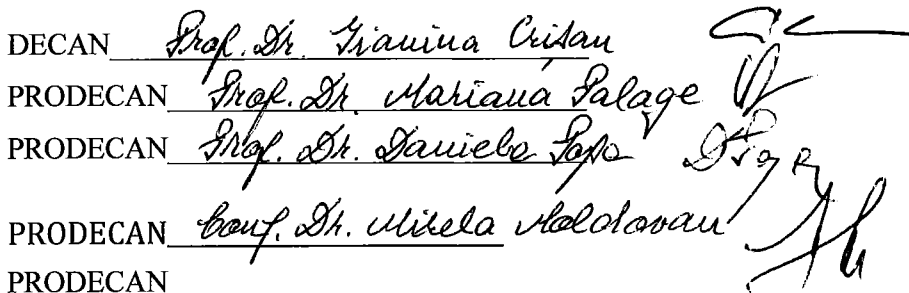 DECAN Prof. Dr. Gianina Crișan
PRODECAN Prof. Dr. Mariana Palage
PRODECAN Prof. Dr. Daniela Popa
PRODECAN Conf. Dr. Mirela Moldovan
PRODECAN